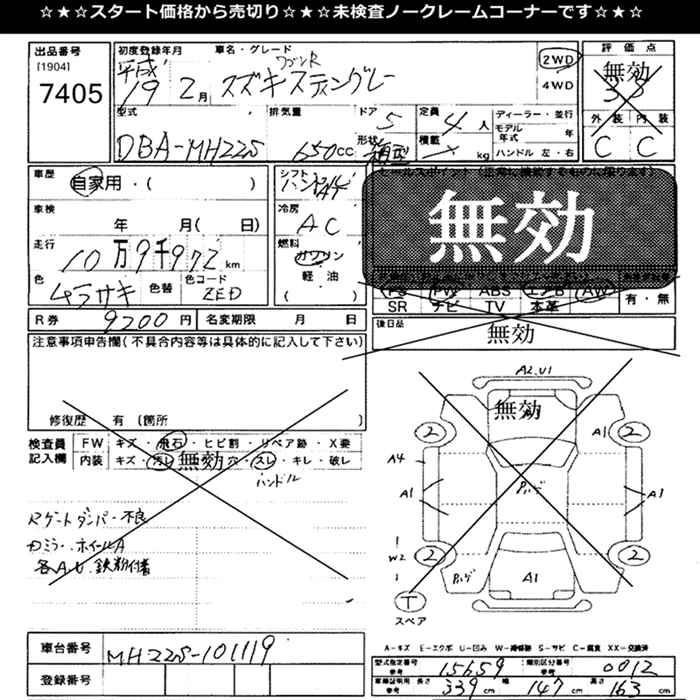 ☆★☆スタート価格から売切り☆★☆未検査ノークレームコーナーです☆★☆
出品番号 [1904] 7405
初度登録年月 平成 19 2月
車名・グレード ワゴンR スズキ スティングレー
2WD 4WD
評価点 無効 3.5
外装 内装 C C
型式 DBA-MH22S
排気量 650cc
ドア 5 形状 箱型
定員 4人 積載 kg
ディーラー・並行
モデル年式 年
ハンドル 左・右
車歴 自家用・( )
シフト
車検 年 月( 日)
冷房 AC
走行 10万9千972km
燃料 ガソリン 軽油 ( )
色 ムラサキ 色替 色コード ZED
無効
PS PW ABS エアB AW
SR ナビ TV 本革
有・無
R券 9200円 名変期限 月 日
後日品 無効
注意事項申告欄(不具合内容等は具体的に記入して下さい)
修復歴 有 (箇所 )
検査員記入欄
FW キズ・飛石・ヒビ割・リペア跡・X要
内装 キズ・汚レ 無効 穴・スレ・キレ・破レ
ハンドル
Rゲートダンパー不良
ホイールA
各A.U.鉄粉付着
A2.U1
無効
2 2
A1
A4
A1 A1
W2
2 2
A1
T
スペア
A-キズ E-エクボ U-凹み W-補修跡 S-サビ C-腐食 XX-交換済
車台番号 MH22S-101119
登録番号
型式指定番号 参考 15659 類別区分番号 参考 0012
車検証明用 参考 長さ 339cm 幅 147cm 高さ 163cm